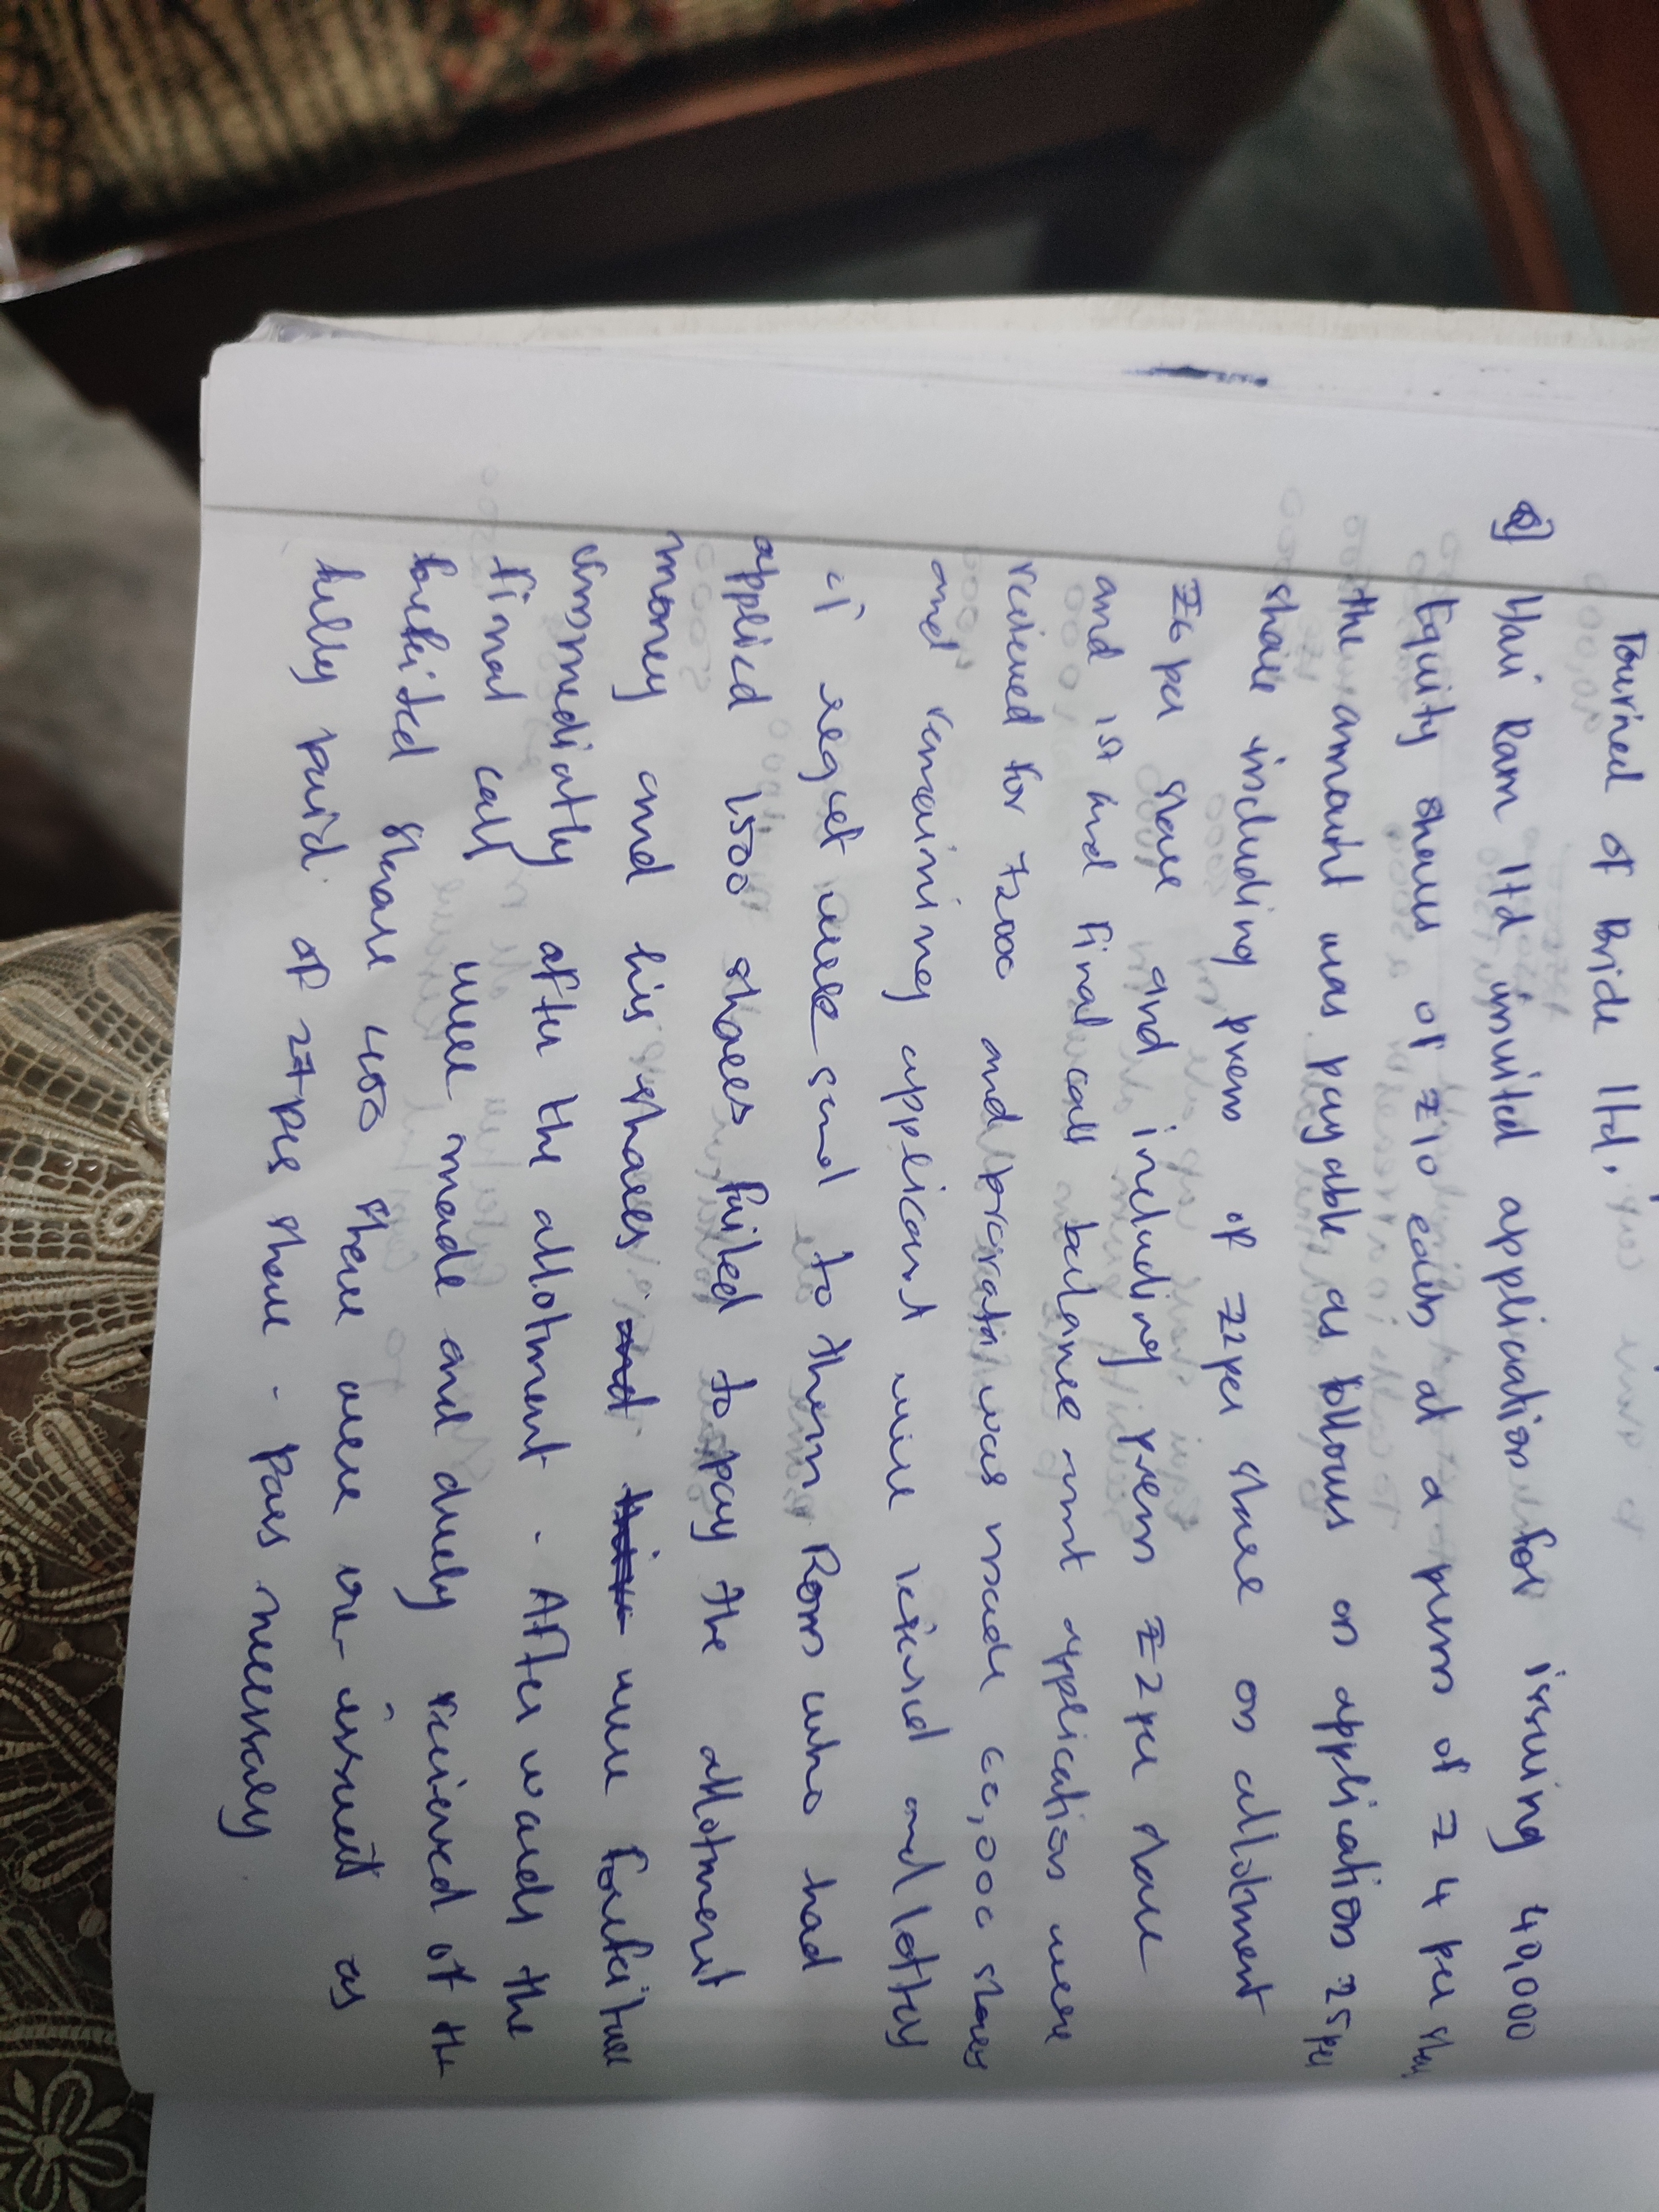 Journal of Pride ltd.
Q) Hari Ram ltd invited application for issuing 40,000
Equity shares of ₹10 each at a prem of ₹4 per share
the amount was payable as follows on application ₹5 per
share including prem of ₹2 per share on allotment
₹6 per share and including prem ₹2 per share
and 1st and final call balance amt application were
recieved for 72000 and prorata was made 60,000 shares
and remaining applicant were refused and letter
of regret were send to them Ram who had
applied 1500 shares failed to pay the allotment
money and his shares and were forfeited
immediatly after the allotment . After wards the
final call were made and duely recieved of the
forfeited share 400 share were re-issued as
fully paid of ₹7 per share . Pass necessary